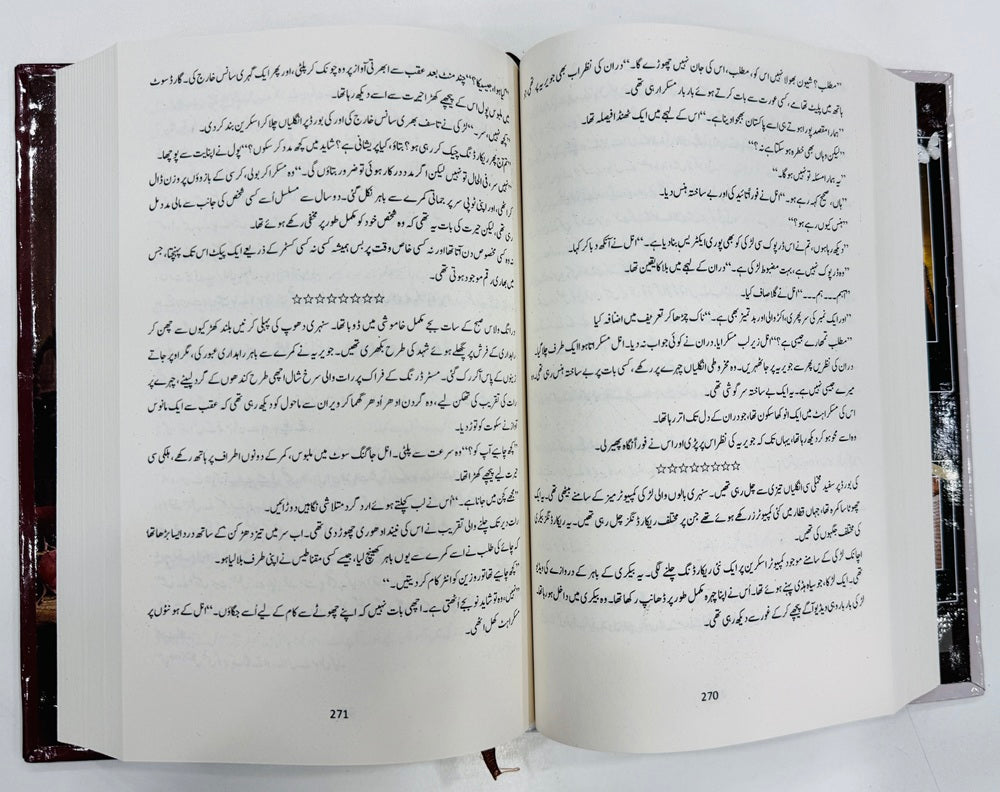 "مطلب؟ شیون بھولا نہیں اس کو، مطلب، اس کی جان نہیں چھوڑے گا۔" دران کی نظر اب بھی جویریہ پر تھی جو
ہاتھ میں پلیٹ تھامے، کسی عورت سے بات کرتے ہوئے بار بار مسکرا رہی تھی۔
"ہمارا مقصد پورا ہوتے ہی اسے پاکستان بھجوا دینا ہے۔" اس کے لہجے میں ایک ٹھنڈا فیصلہ تھا۔
"لیکن وہاں بھی خطرہ ہو سکتا ہے نہ؟"
"یہ ہمارا مسئلہ تو نہیں ہوگا۔"
"ہاں، صحیح کہہ رہے ہو۔" انل نے فوراً تائید کی اور بے ساختہ ہنس دیا۔
"ہنس کیوں رہے ہو؟"
"دیکھ رہا ہوں، تم نے اس ڈرپوک سی لڑکی کو بھی پوری ایکٹریس بنا دیا ہے۔" انل نے آنکھ دبا کر کہا۔
"وہ ڈرپوک نہیں ہے، بہت مضبوط لڑکی ہے۔" دران کے لہجے میں بلا کا یقین تھا۔
"اہم۔۔۔ ہم۔۔۔" انل نے گلا صاف کیا۔
"اور ایک نمبر کی سر پھری، اکڑ والی اور بدتمیز بھی ہے۔" ناک چڑھا کر تعریف میں اضافہ کیا
"مطلب تمھارے جیسی ہے؟" انل زیر لب مسکرایا، دران نے کوئی جواب نہ دیا۔ انل مسکراتا ہوا ایک طرف چلا گیا۔
دران کی نظریں پھر سے جویریہ پر جا ٹھہریں۔ وہ مخروطی انگلیاں چہرے پر رکھے، کسی بات پر بے ساختہ ہنس رہی تھی۔
میرے جیسی نہیں ہے۔ یہ ایک بے ساختہ سرگوشی تھی۔
اس کی مسکراہٹ میں ایک انوکھا سکون تھا، جو دران کے دل تک اتر رہا تھا۔
وہ اسے محو ہو کر دیکھ رہا تھا، یہاں تک کہ جویریہ کی نظر اس پر پڑی اور اس نے فوراً نگاہ پھیر لی۔
☆☆☆☆☆☆☆☆☆
کی بورڈ پر سفید مخملی سی انگلیاں تیزی سے چل رہی تھیں۔ سنہری بالوں والی لڑکی کمپیوٹر میز کے سامنے بیٹھی تھی۔ یہ ایک
چھوٹا سا کمرہ تھا، جہاں قطار میں کئی کمپیوٹرز رکھے ہوئے تھے جن پر مختلف ریکارڈنگز چل رہی تھیں۔ یہ ریکارڈنگز بیکری
کی مختلف جگہوں کی تھیں۔
اچانک لڑکی کے سامنے موجود کمپیوٹر اسکرین پر ایک نئی ریکارڈنگ چلنے لگی۔ یہ بیکری کے باہر کے دروازے کی ویڈیو
تھی۔ ایک لڑکا، جو سیاہ ہڈی پہنے ہوئے تھا۔ اُس نے اپنا چہرہ مکمل طور پر ڈھانپ رکھا تھا۔ وہ بیکری میں داخل ہو رہا تھا،
لڑکی بار بار وہی ویڈیو آگے پیچھے کر کے غور سے دیکھ رہی تھی۔
270
"کیا ہوا، جیسیکا؟" چند منٹ بعد عقب سے ابھرتی آواز پر وہ چونک کر پلٹی، اور پھر ایک گہری سانس خارج کی۔ گارڈ سوٹ
میں ملبوس پول اس کے پیچھے کھڑا حیرت سے اسے دیکھ رہا تھا۔
"کچھ نہیں، سر۔" لڑکی نے تاسف بھری سانس خارج کی اور کی بورڈ پر انگلیاں چلا کر اسکرین بند کر دی۔
"تم آج پھر ریکارڈنگ چیک کر رہی ہو؟ بتاؤ، کیا پریشانی ہے؟ شاید میں کچھ مدد کر سکوں؟" پول نے اپنایت سے پوچھا۔
"نہیں سر، فی الحال تو نہیں لیکن اگر مدد درکار ہوئی تو ضرور بتاؤں گی۔" وہ مسکرا کر بولی، کرسی کے بازوؤں پر وزن ڈال
کر اٹھی، اور اپنی ٹوپی سر پر جماتی کمرے سے باہر نکل گئی۔ دو سال سے مسلسل اُسے کسی شخص کی جانب سے مالی مدد مل
رہی تھی، لیکن حیرت کی بات یہ تھی کہ وہ شخص خود کو مکمل طور پر مخفی رکھے ہوئے تھا۔
نہ وہ کسی مخصوص دن آتا تھا اور نہ کسی خاص وقت پر بس ہمیشہ کسی نہ کسی کسٹمر کے ذریعے ایک پیکٹ اس تک پہنچتا، جس
میں بھاری رقم موجود ہوتی تھی۔
☆☆☆☆☆☆☆☆☆
درانگ ولاس صبح کے سات بجے مکمل خاموشی میں ڈوبا تھا۔ سنہری دھوپ کی پہلی کرنیں بلند کھڑکیوں سے چھن کر
راہداری کے فرش پر پگھلے ہوئے شہد کی طرح بکھری تھیں۔ جویریہ نے کمرے سے باہر راہداری عبور کی، مگر اوپر جاتے
زینوں کے پاس آ کر رک گئی۔ مسٹرڈ رنگ کے فراک پر رات والی سرخ شال اچھی طرح کندھوں کے گرد لپیٹے، چہرے پر
رات کی تقریب کی تھکن لیے، وہ گردن ادھر اُدھر گھما کر ویران سے ماحول کو دیکھ رہی تھی کہ عقب سے ایک مانوس
آواز نے سکوت کو توڑ دیا۔
"کچھ چاہیے آپ کو؟" وہ سرعت سے پلٹی۔ انل جاگنگ سوٹ میں ملبوس، کمر کے دونوں اطراف پر ہاتھ رکھے، ہلکی سی
حیرت لیے پیچھے کھڑا تھا۔
"مجھے کچن میں جانا ہے۔" اُس نے لب کچلتے ہوئے ارد گرد متلاشی نگاہیں دوڑائیں۔
رات دیر تک چلنے والی تقریب نے اس کی نیند ادھوری چھوڑ دی تھی۔ اب سر میں تیز دھڑکن کے ساتھ درد ایسا بڑھا تھا
کہ چائے کی طلب نے اسے کمرے سے یوں باہر کھینچ لیا، جیسے کسی مقناطیس نے اپنی طرف بلا لیا ہو۔
"کچھ چاہیے تھا تو روزین کو انٹر کام کر دیتیں۔"
"نہیں، وہ تو شاید نو بجے اُٹھتی ہے۔ اچھی بات نہیں کہ اپنے چھوٹے سے کام کے لیے اُسے جگاؤں۔" انل کے ہونٹوں پر
مسکراہٹ کھل اٹھی۔
271